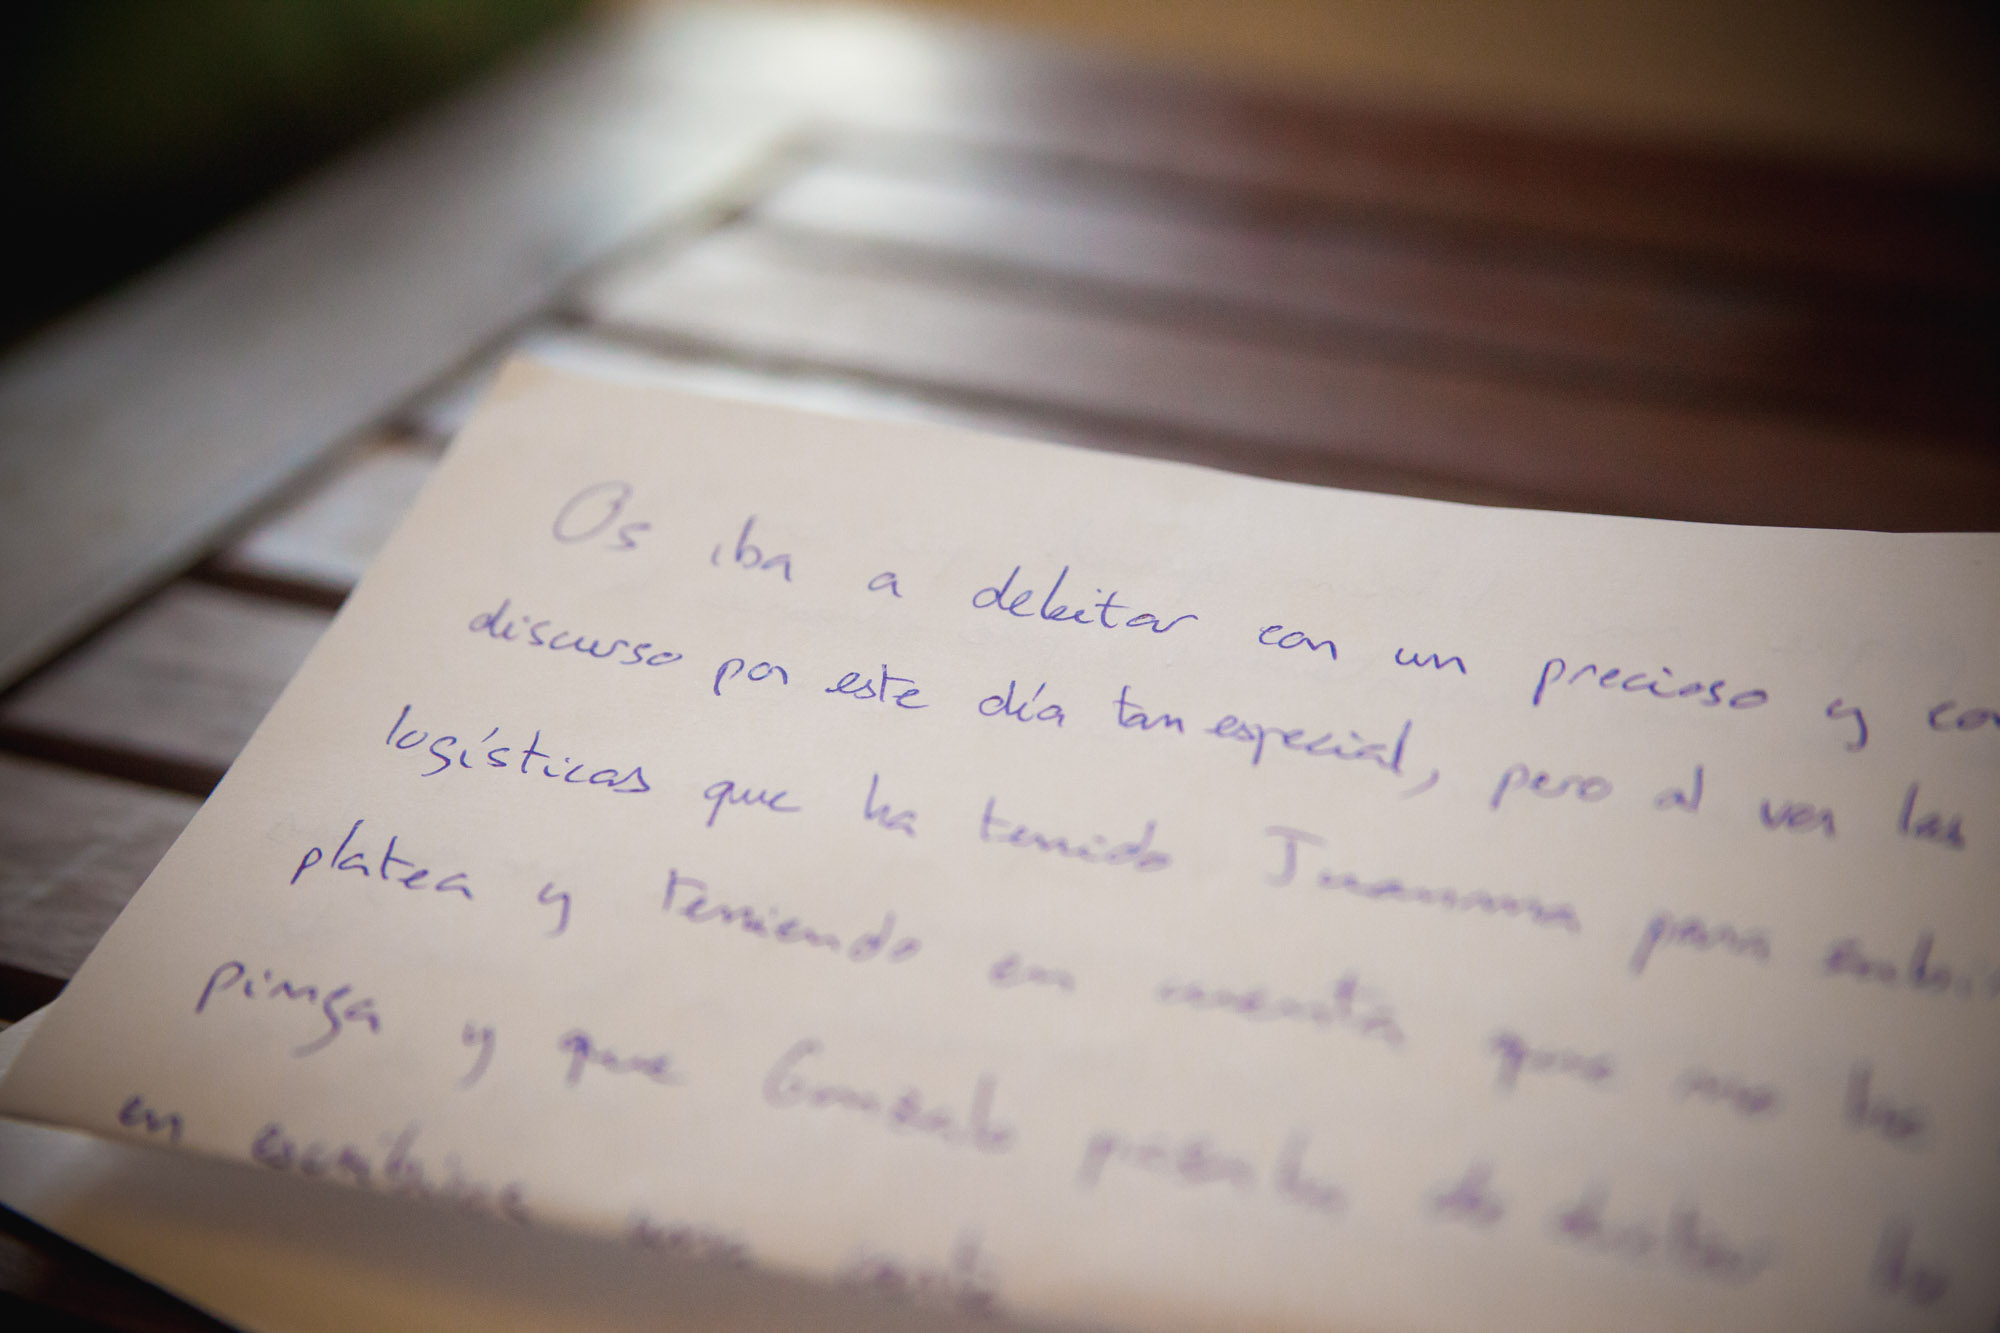 Os iba a debitar con un precioso y
discurso por este día tan especial, pero al ver las
logísticas que ha tenido Juanma para
platea y teniendo en cuenta que no ha
pinga y que Gonzalo
en escribirme una carta